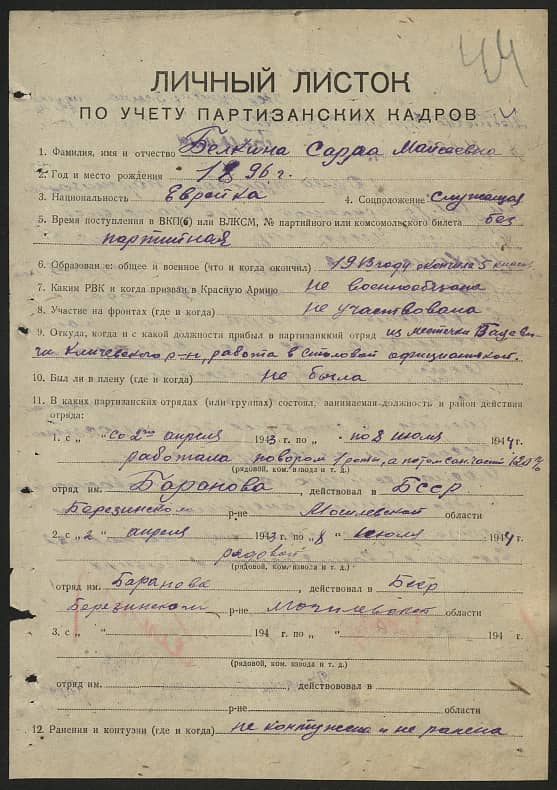 44
ЛИЧНЫЙ ЛИСТОК
ПО УЧЕТУ ПАРТИЗАНСКИХ КАДРОВ
1. Фамилия, имя и отчество Белкина Сарра Майсеевна
2. Год и место рождения 1896 г.
3. Национальность Еврейка 4. Соцположение Служащая
5. Время поступления в ВКП(б) или ВЛКСМ, № партийного или комсомольского билета без
партийная
6. Образование: общее и военное (что и когда окончил) 1913 году окончила 5 классов
7. Каким РВК и когда призван в Красную Армию не военнообязана
8. Участие на фронтах (где и когда) не участвовала
9. Откуда, когда и с какой должности прибыл в партизанский отряд из местечки
Кличевского р-н, работа в столовой официанткой.
10. Был ли в плену (где и когда) не была
11. В каких партизанских отрядах (или группах) состоял, занимаемая должность и район действия
отряда:
1. с „ “ со 2го апреля 1943 г. по „ “ по 8 июля 1944 г.
работала поваром 1 роты, а потом сан. части
(рядовой, ком. взвода и т. д.)
отряд им. Баранова, действовал в Бсср
Березинском р-не Могилевской области
2. с „2 “ апреля 1943 г. по „8 “ июля 1944 г.
рядовой
(рядовой, ком. взвода и т. д.)
отряд им. Баранова действовал в Бсср
Березинском р-не Могилевской области
3. с „ “ 194 г. по „ “ 194 г.
(рядовой, ком. взвода и т. д.)
отряд им. , действововал в
р-не области
12. Ранения и контузии (где и когда) не контужена и не ранена